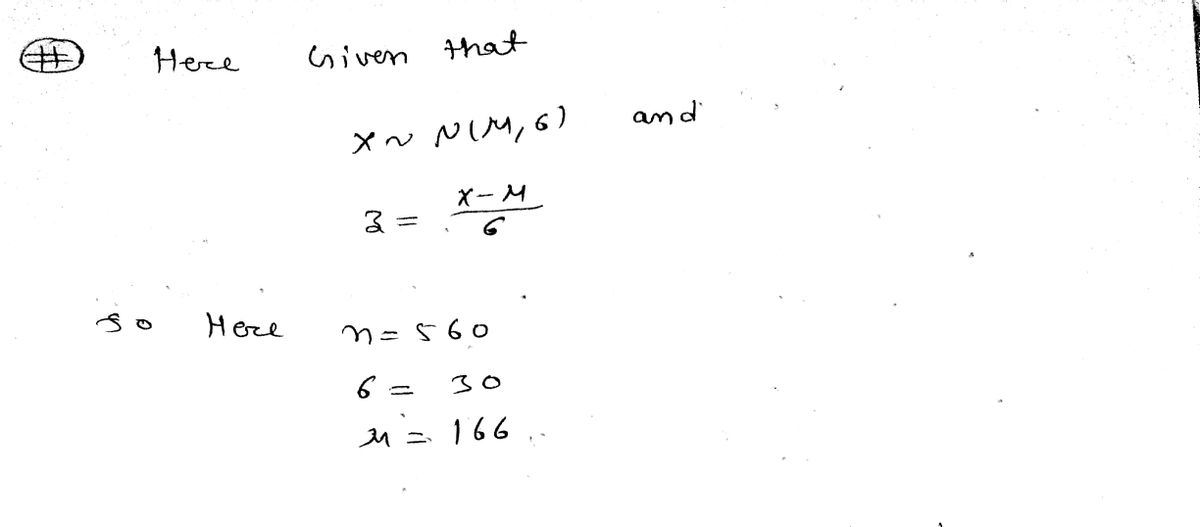 # Here Given that
X ~ N(μ, σ) and
z = X - μ / σ
so Here n = 560
σ = 30
μ = 166